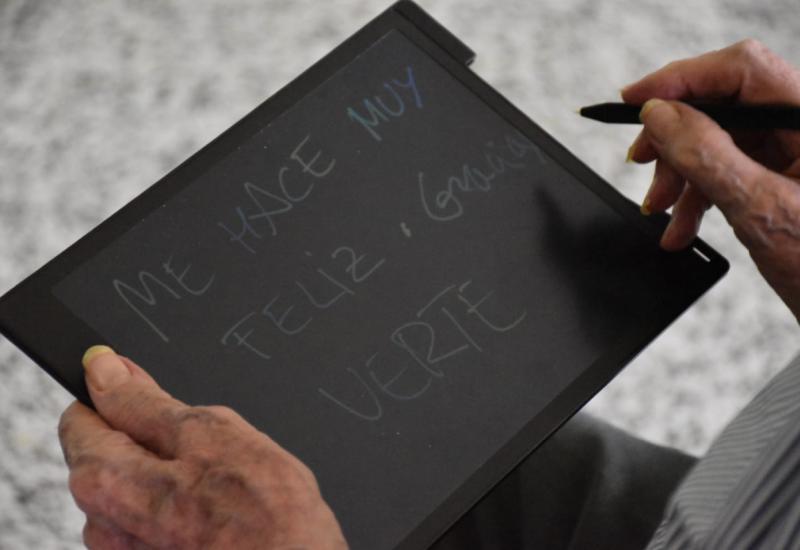 ME HACE MUY
FELIZ, Gracias
VERTE